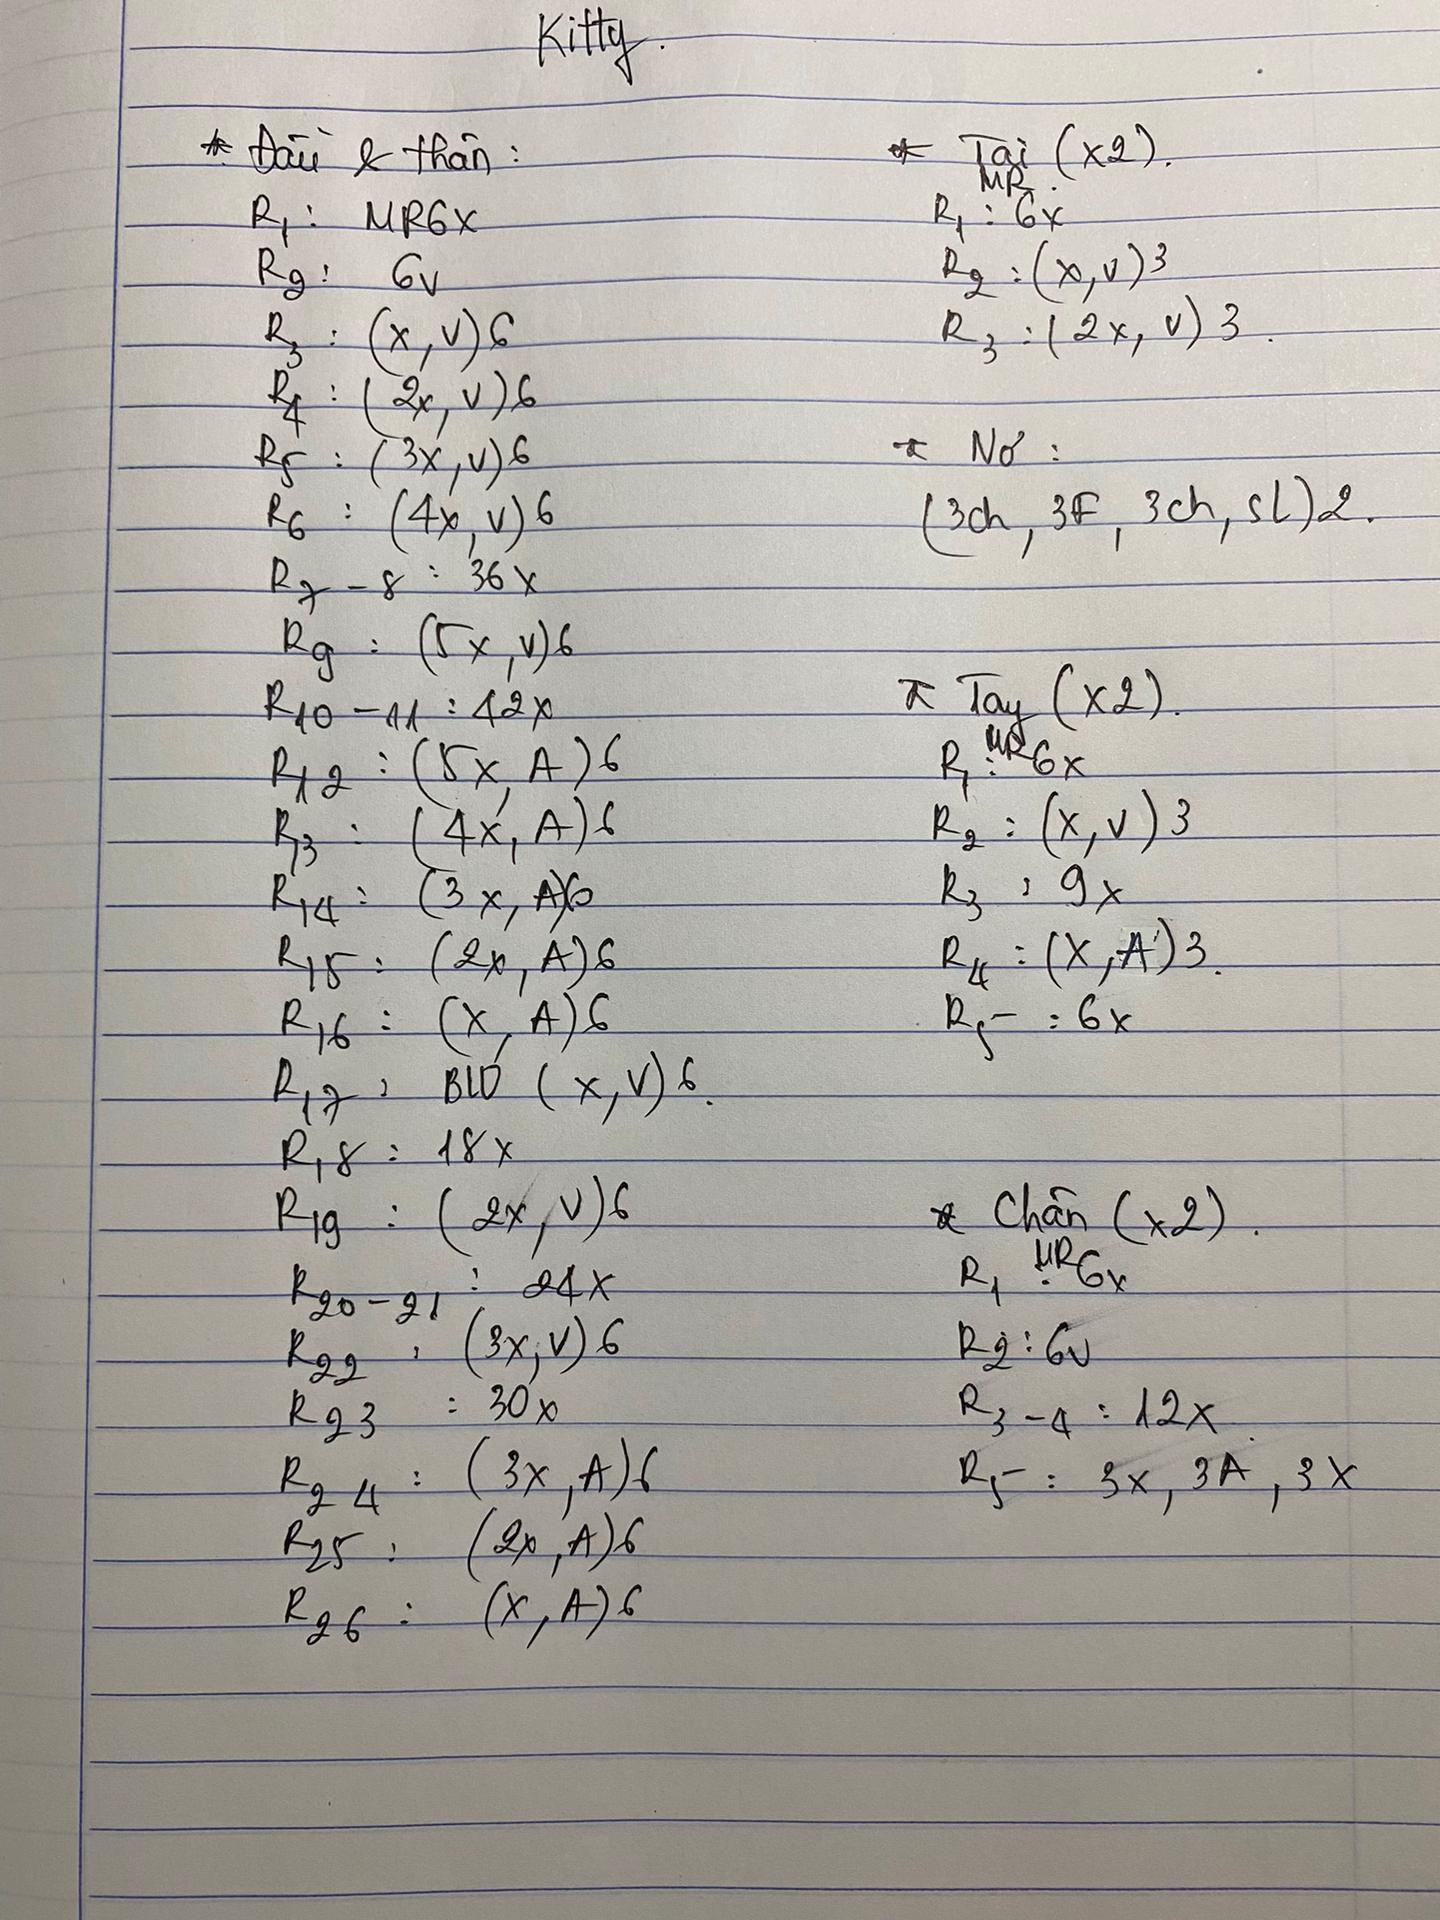 Kitty.
* Đầu & thân :
R1 : MR6X
R2 : 6v
R3 : (x, v)6
R4 : (2x, v)6
R5 : (3x, v)6
R6 : (4x, v)6
R7-8 : 36x
R9 : (5x, v)6
R10-11 : 42x
R12 : (5x, A)6
R13 : (4x, A)6
R14 : (3x, A)6
R15 : (2x, A)6
R16 : (x, A)6
R17 : BLO (x, v)6.
R18 : 18x
R19 : (2x, v)6
R20-21 : 24x
R22 : (3x, v)6
R23 : 30x
R24 : (3x, A)6
R25 : (2x, A)6
R26 : (x, A)6
* Tai (x2).
R1 : MR 6x
R2 : (x, v)3
R3 : (2x, v)3.
* Nơ :
(3ch, 3F, 3ch, sl)2.
* Tay (x2).
R1 : MR6x
R2 : (x, v)3
R3 : 9x
R4 : (x, A)3.
R5 : 6x
* Chân (x2).
R1 : MR6x
R2 : 6v
R3-4 : 12x
R5 : 3x, 3A, 3x